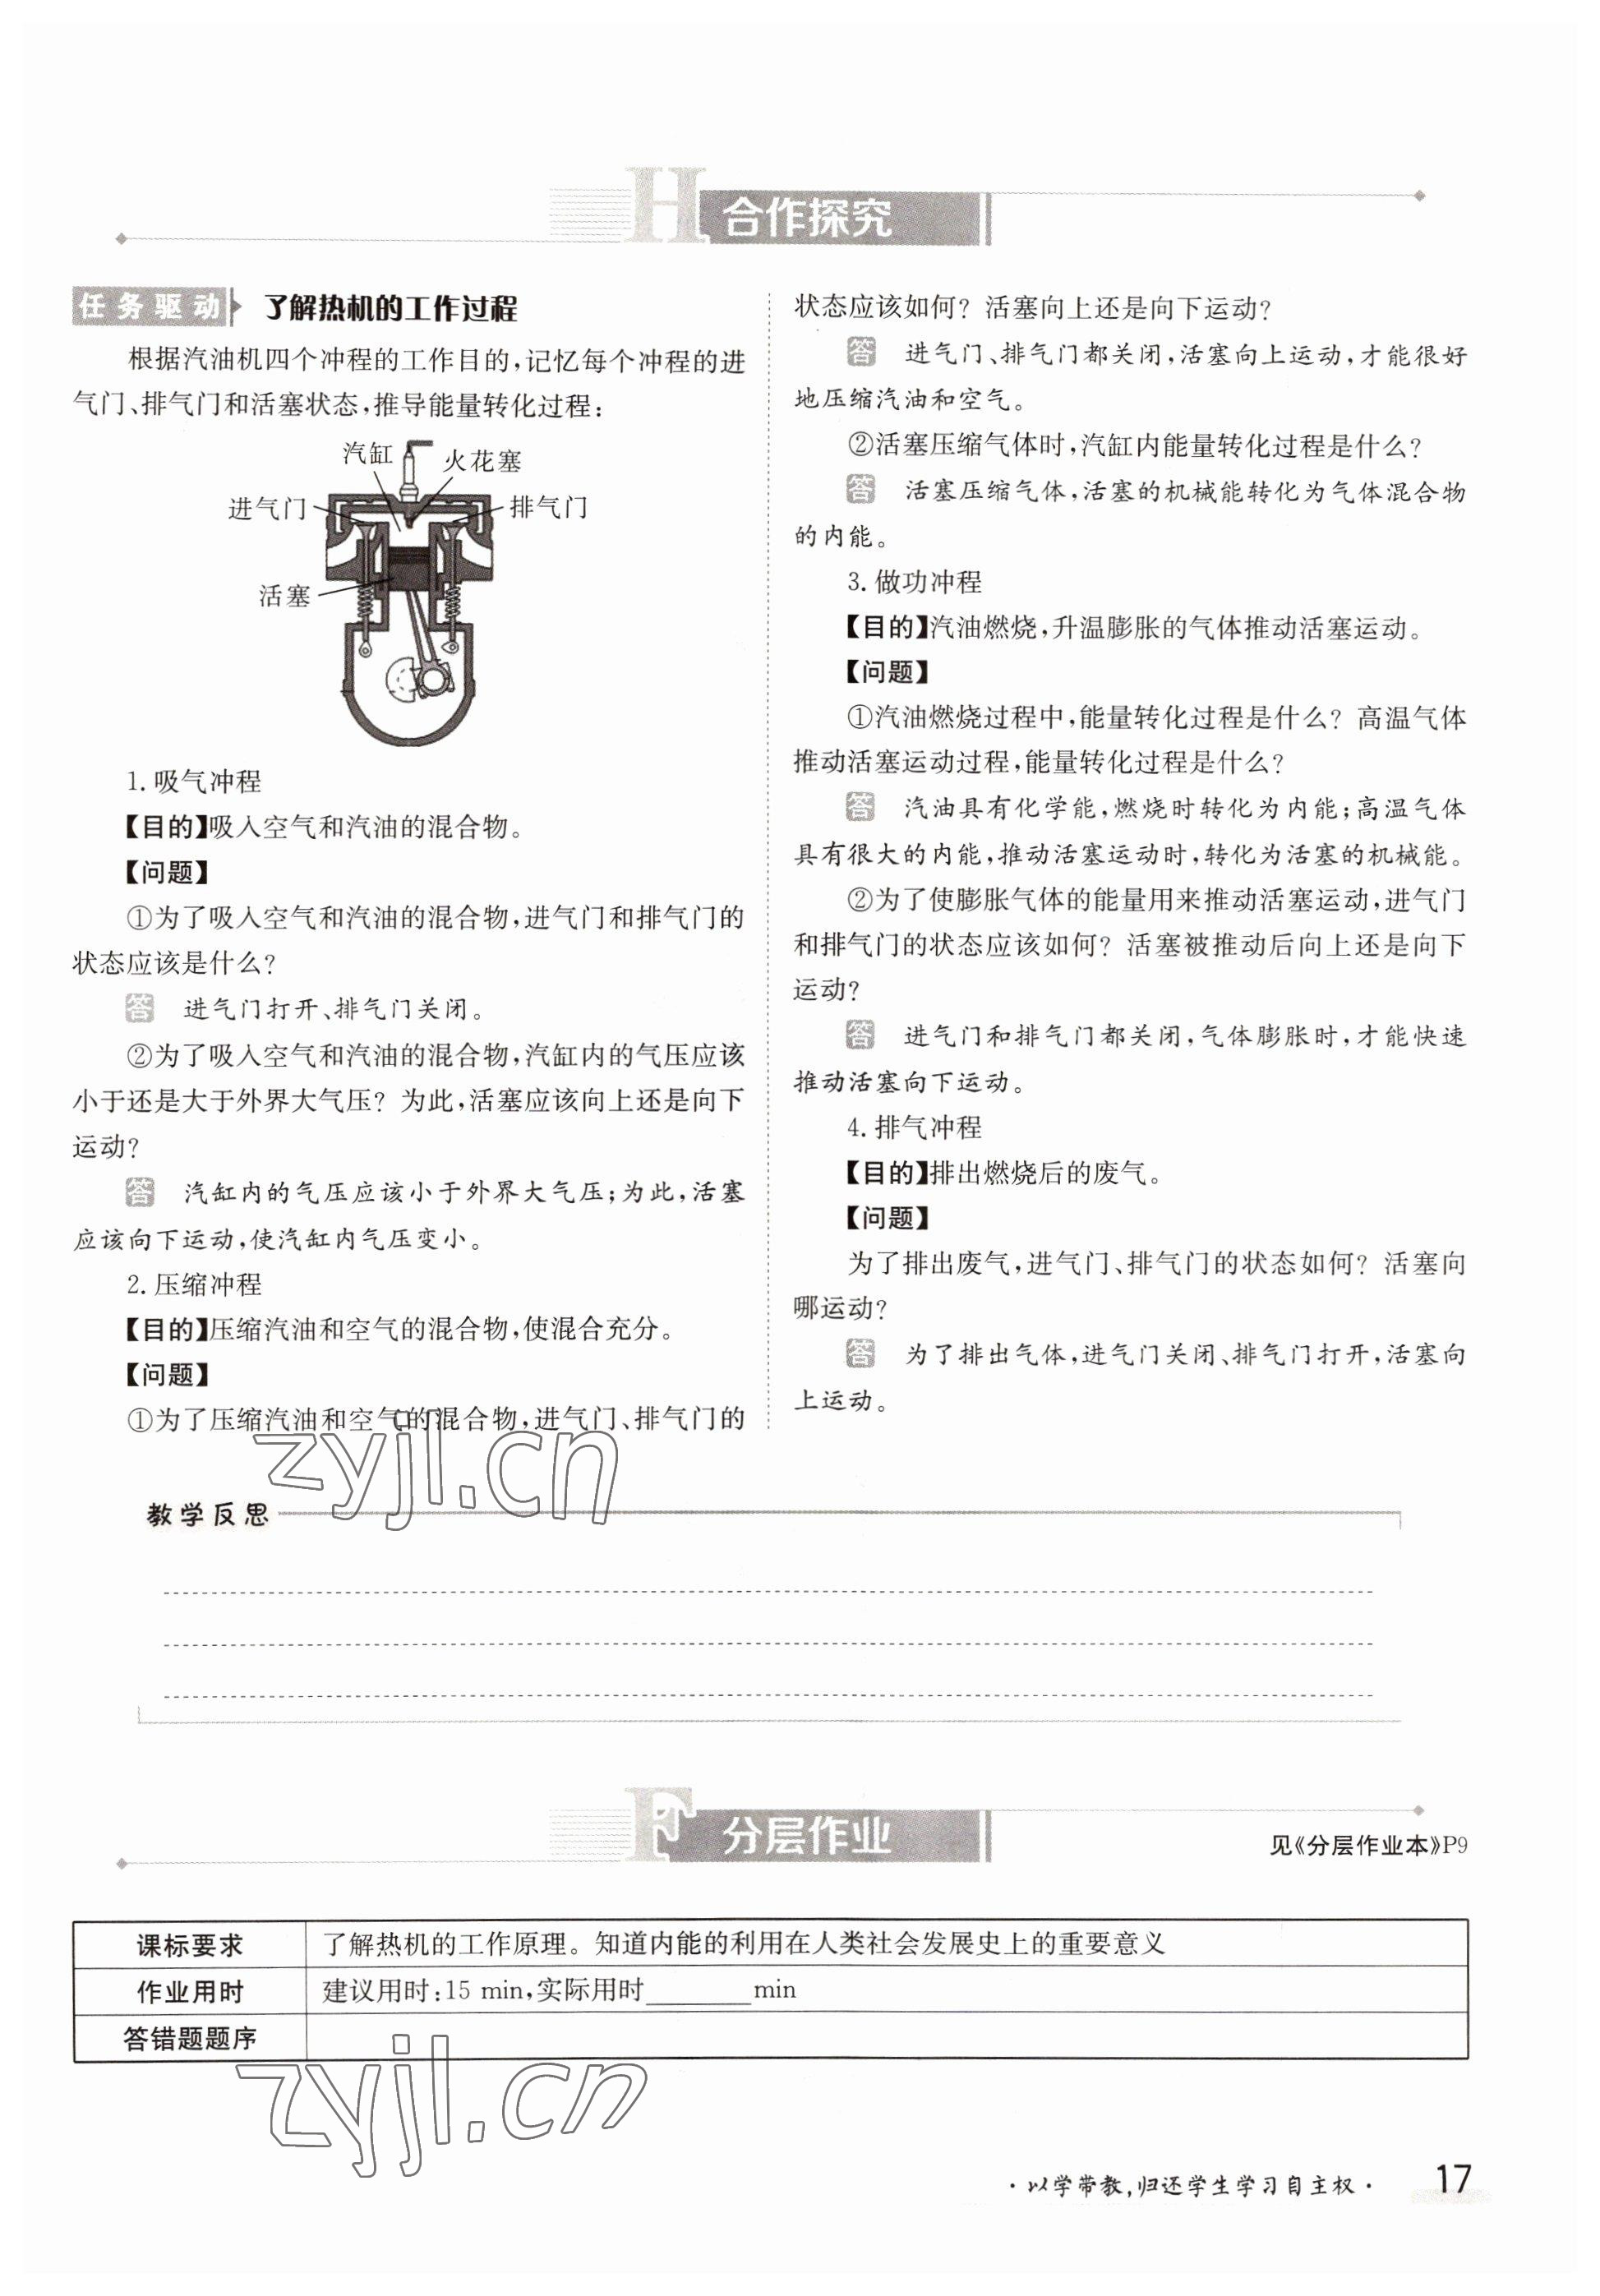 H 合作探究
任务驱动 了解热机的工作过程
根据汽油机四个冲程的工作目的,记忆每个冲程的进
气门、排气门和活塞状态,推导能量转化过程:
汽缸
火花塞
进气门
排气门
活塞
1. 吸气冲程
【目的】吸入空气和汽油的混合物。
【问题】
①为了吸入空气和汽油的混合物,进气门和排气门的
状态应该是什么?
答 进气门打开、排气门关闭。
②为了吸入空气和汽油的混合物,汽缸内的气压应该
小于还是大于外界大气压? 为此,活塞应该向上还是向下
运动?
答 汽缸内的气压应该小于外界大气压;为此,活塞
应该向下运动,使汽缸内气压变小。
2. 压缩冲程
【目的】压缩汽油和空气的混合物,使混合充分。
【问题】
①为了压缩汽油和空气的混合物,进气门、排气门的
状态应该如何? 活塞向上还是向下运动?
答 进气门、排气门都关闭,活塞向上运动,才能很好
地压缩汽油和空气。
②活塞压缩气体时,汽缸内能量转化过程是什么?
答 活塞压缩气体,活塞的机械能转化为气体混合物
的内能。
3. 做功冲程
【目的】汽油燃烧,升温膨胀的气体推动活塞运动。
【问题】
①汽油燃烧过程中,能量转化过程是什么? 高温气体
推动活塞运动过程,能量转化过程是什么?
答 汽油具有化学能,燃烧时转化为内能;高温气体
具有很大的内能,推动活塞运动时,转化为活塞的机械能。
②为了使膨胀气体的能量用来推动活塞运动,进气门
和排气门的状态应该如何? 活塞被推动后向上还是向下
运动?
答 进气门和排气门都关闭,气体膨胀时,才能快速
推动活塞向下运动。
4. 排气冲程
【目的】排出燃烧后的废气。
【问题】
为了排出废气,进气门、排气门的状态如何? 活塞向
哪运动?
答 为了排出气体,进气门关闭、排气门打开,活塞向
上运动。
zyjl.cn
教学反思
F 分层作业
见《分层作业本》P9
课标要求 了解热机的工作原理。知道内能的利用在人类社会发展史上的重要意义
作业用时 建议用时:15 min,实际用时________min
答错题题序
zyjl.cn
·以学带教,归还学生学习自主权· 17